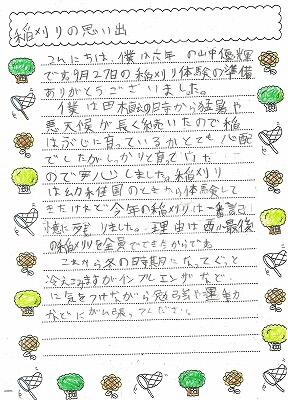 稲刈りの思い出
こんにちは、僕は六年の山中優輝
です。9月27日の稲刈り体験の準備
ありがとうございました。
僕は田植の時から猛暑や
悪天候が長く続いたので稲
はぶじに育っているかとても心配
でしたがしっかりと育ていた
ので安心しました。稲刈り
は幼稚園のときから体験して
きたけれど今年の稲刈りは一番記
憶に残りました。理由は西小最後
の稲刈りを全員でできたからです。
これから冬の時期になってぐっと
冷えこみますがインフルエンザなど
に気をつけながら勉強や運動
などにがんばってください。